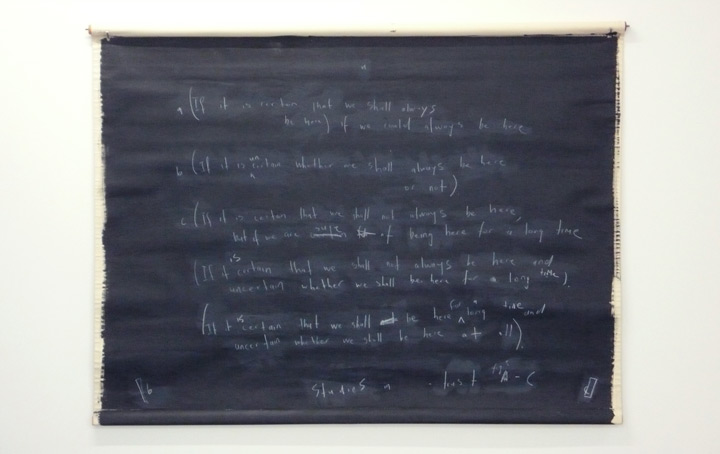 a (If it is certain that we shall always
be here) if we could always be here
b (If it is un certain whether we shall always be here
or not)
c (If it is certain that we shall not always be here,
but if we are sure of being here for a long time
(If it is certain that we shall not always be here and
uncertain whether we shall be here for a long time).
(If it is certain that we shall be here for a long time and
uncertain whether we shall be here at all).
b Studies figs A - C